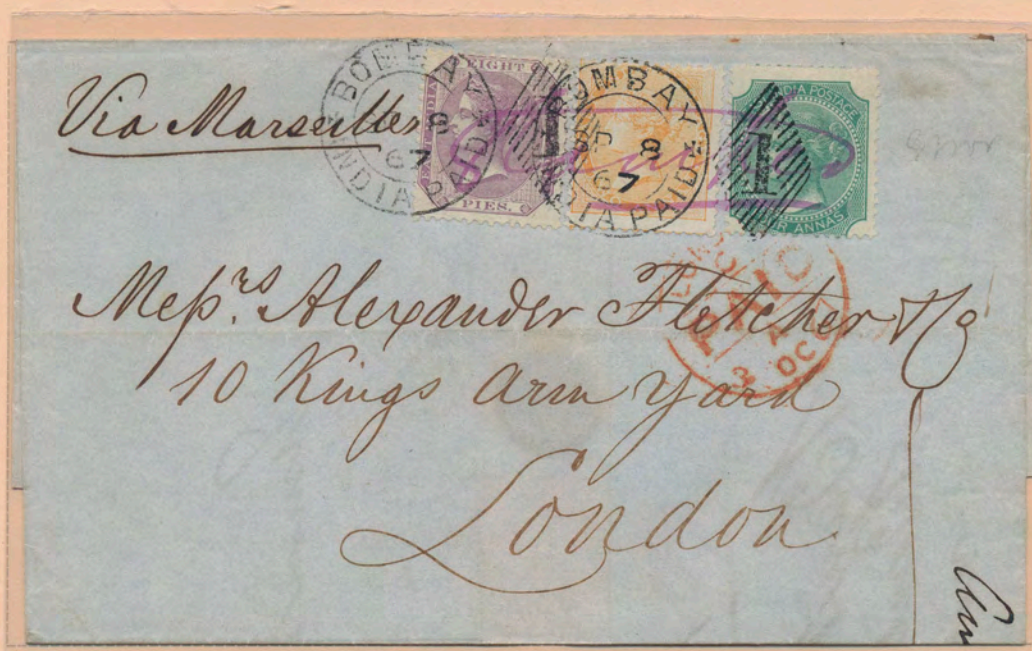 Via Marseilles
BOMBAY
8
67
INDIA PAID
EIGHT
PIES.
BOMBAY
SEP 8
67
INDIA PAID
1
INDIA POSTAGE
1
FOUR ANNAS
LONDON
PAID
3 OC 67
Messrs. Alexander Fletcher & Co
10 Kings Arm Yard
London